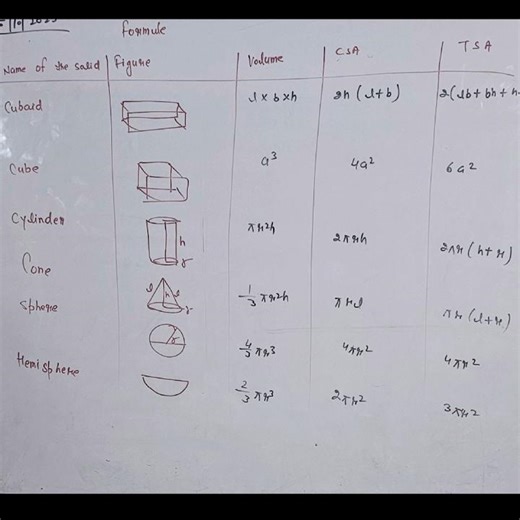 Formule
Name of the solid Figure Volume CSA TSA
Cuboid l × b × h 2h (l+b) 2(lb + bh + h
Cube a³ 4a² 6a²
Cylinder h r πr²h 2πrh 2πr (h+r)
Cone l h l r 1/3 πr²h πrl πr (l+r)
Sphere r 4/3 πr³ 4πr² 4πr²
Hemisphere 2/3 πr³ 2πr² 3πr²